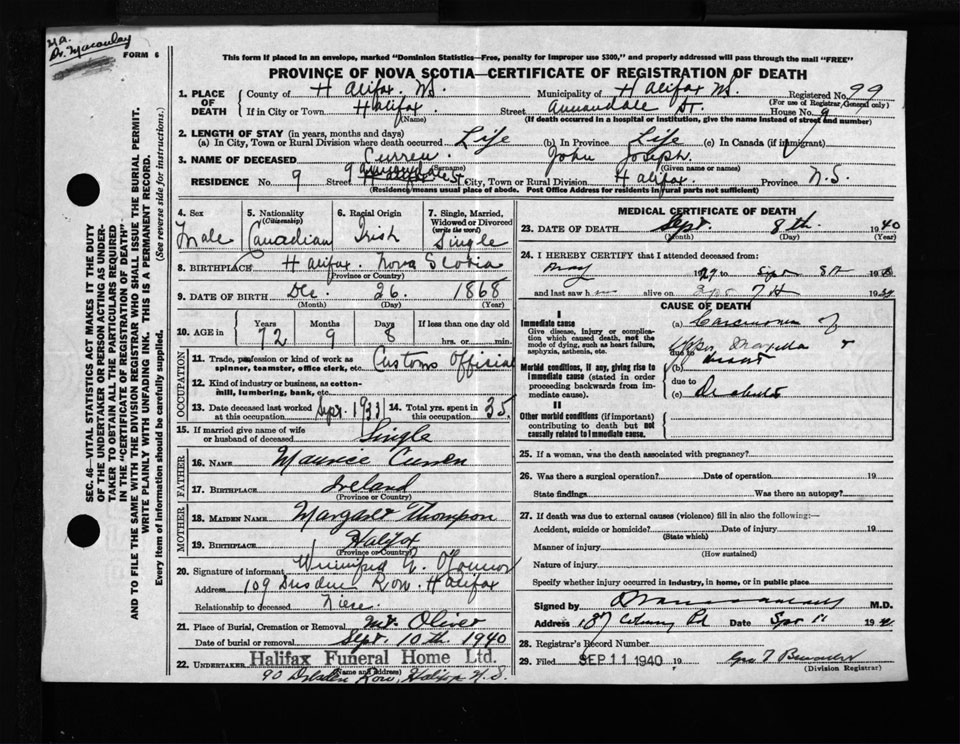 Dr. Macaulay
FORM 6
This form if placed in an envelope, marked "Dominion Statistics—Free, penalty for improper use $300," and properly addressed will pass through the mail "FREE"
PROVINCE OF NOVA SCOTIA—CERTIFICATE OF REGISTRATION OF DEATH
1. PLACE OF DEATH
County of Halifax. N.S. Municipality of Halifax N.S. Registered No. 99
(For use of Registrar, General only)
If in City or Town Halifax. Street Annandale St. House No. 9
(Name)
(If death occurred in a hospital or institution, give the name instead of street and number)
2. LENGTH OF STAY (in years, months and days)
(a) In City, Town or Rural Division where death occurred Life (b) In Province Life (c) In Canada (if immigrant)
3. NAME OF DECEASED Curren. John Joseph.
(Surname) (Given name or names)
RESIDENCE No. 9 Street City, Town or Rural Division Halifax. Province N.S.
(Residence means usual place of abode. Post Office Address for residents in rural parts not sufficient)
4. Sex Male
5. Nationality (Citizenship) Canadian
6. Racial Origin Irish
7. Single, Married, Widowed or Divorced (write the word) Single
8. BIRTHPLACE Halifax. Nova Scotia
(Province or Country)
9. DATE OF BIRTH Dec. 26. 1868
(Month) (Day) (Year)
10. AGE in Years 72 Months 9 Days 8 If less than one day old hrs. or min.
OCCUPATION
11. Trade, profession or kind of work as spinner, teamster, office clerk, etc. Customs Official
12. Kind of industry or business, as cotton-mill, lumbering, bank, etc.
13. Date deceased last worked at this occupation Sept. 1933 14. Total yrs. spent in this occupation 35.
15. If married give name of wife or husband of deceased Single
FATHER
16. NAME Maurice Curren
17. BIRTHPLACE Ireland
(Province or Country)
MOTHER
18. MAIDEN NAME Margaret Thompson
19. BIRTHPLACE Halifax
(Province or Country)
20. Signature of informant Winnifred O'Connor
Address 109 Row. Halifax
Relationship to deceased Niece.
21. Place of Burial, Cremation or Removal Mt. Olivet
Date of burial or removal Sept. 10th 1940
22. UNDERTAKER Halifax Funeral Home Ltd.
(Name and address)
90 Row, Halifax N.S.
MEDICAL CERTIFICATE OF DEATH
23. DATE OF DEATH Sept. 8th. 1940
(Month) (Day) (Year)
24. I HEREBY CERTIFY that I attended deceased from:
May 19 Sept 8th 19
and last saw h alive on 7th 19
CAUSE OF DEATH
I
Immediate cause
Give disease, injury or complication which caused death, not the mode of dying, such as heart failure, asphyxia, asthenia, etc.
(a) Carcinoma of
Upper Maxilla
due to
(b)
Morbid conditions, if any, giving rise to immediate cause (stated in order proceeding backwards from immediate cause).
due to
(c) Diabetes
II
Other morbid conditions (if important) contributing to death but not causally related to immediate cause.
25. If a woman, was the death associated with pregnancy?
26. Was there a surgical operation? Date of operation 19
State findings Was there an autopsy?
27. If death was due to external causes (violence) fill in also the following:—
Accident, suicide or homicide? Date of injury 19
(State which)
Manner of injury
(How sustained)
Nature of injury
Specify whether injury occurred in industry, in home, or in public place
Signed by M.D.
Address Date Sept 11 19
28. Registrar's Record Number
29. Filed SEP 11 1940 19
(Division Registrar)
SEC. 46—VITAL STATISTICS ACT MAKES IT THE DUTY
OF THE UNDERTAKER OR PERSON ACTING AS UNDER-
TAKER TO OBTAIN ALL THE PARTICULARS REQUIRED
IN THE "CERTIFICATE OF REGISTRATION OF DEATH"
AND TO FILE THE SAME WITH THE DIVISION REGISTRAR WHO SHALL ISSUE THE BURIAL PERMIT.
WRITE PLAINLY WITH UNFADING INK. THIS IS A PERMANENT RECORD.
Every item of information should be carefully supplied. (See reverse side for instructions.)